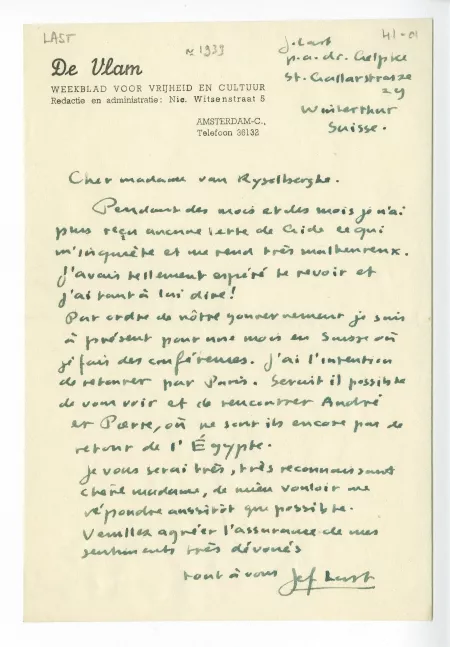 LAST
41-01
n 1939
De Vlam
WEEKBLAD VOOR VRIJHEID EN CULTUUR
Redactie en administratie: Nic. Witsenstraat 5
AMSTERDAM-C.,
Telefoon 36132
J. Last
p.a. dr. Gelpke
St. Gallerstrasze
29
Winterthur
Suisse.
Cher madame van Rysselberghe.
Pendant des mois et des mois je n'ai
plus reçu aucune lettre de Gide ce qui
m'inquiète et me rend très malheureux.
J'avais tellement espéré le revoir et
j'ai tant à lui dire!
Par ordre de nôtre gouvernement je suis
à présent pour une mois en Suisse où
je fais des conférences. J'ai l'intention
de retourer par Paris. Serait il possible
de vous voir et de rencontrer André
et Pierre, où ne sont ils encore pas de
retour de l'Égypte.
Je vous serai très, très reconnaissant
chère madame, de bien vouloir me
répondre aussitôt que possible.
Veuillez agréer l'assurance de mes
sentiments très dévoués
tout à vous Jef Last